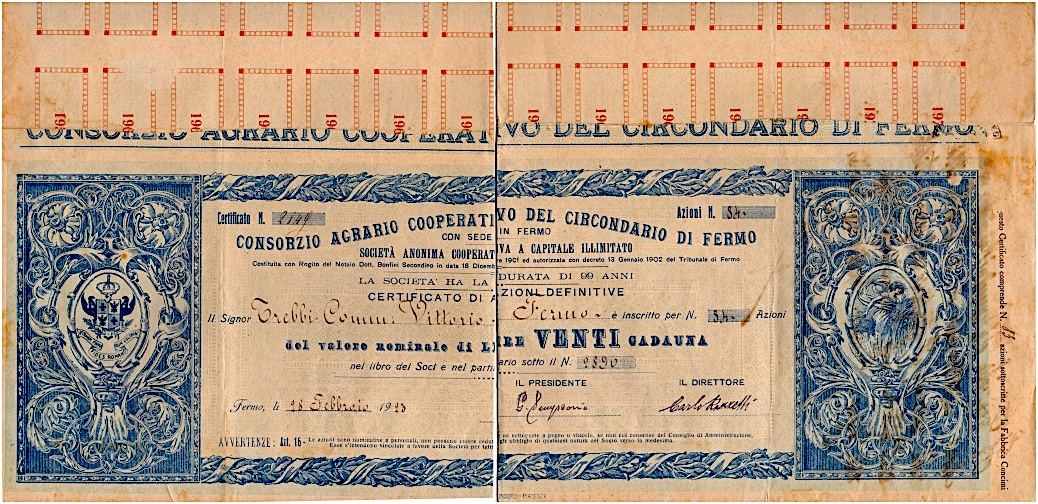 CONSORZIO AGRARIO COOPERATIVO DEL CIRCONDARIO DI FERMO
Certificato N. 2149
Azioni N. 34.
CONSORZIO AGRARIO COOPERATIVO DEL CIRCONDARIO DI FERMO
CON SEDE IN FERMO
SOCIETÀ ANONIMA COOPERATIVA A CAPITALE ILLIMITATO
Costituita con Rogito del Notaio Dott. Bonfini Secondino in data 18 Dicembre 1901 ed autorizzata con decreto 13 Gennaio 1902 del Tribunale di Fermo
LA SOCIETA' HA LA DURATA DI 99 ANNI
CERTIFICATO DI AZIONI DEFINITIVE
Il Signor Trebbi Comm: Vittorio - Fermo - è inscritto per N. 34.- Azioni
del valore nominale di LIRE VENTI cadauna
nel libro dei Soci e nel partitario sotto il N. 9890
IL PRESIDENTE IL DIRETTORE
Fermo, li 28 Febbraio 1923
AVVERTENZE: Art. 16 - Le azioni sono nominative e personali, non possono essere cedute nè sottoposte a pegno o vincolo, se non col consenso del Consiglio di Amministrazione,
Esse s'intendono vincolate a favore della Società per tutti gli obblighi di qualsiasi natura del Socio verso la medesima.
PIACENZA
Certificato comprende N. azioni sottoscritte per la Fabbrica Concimi